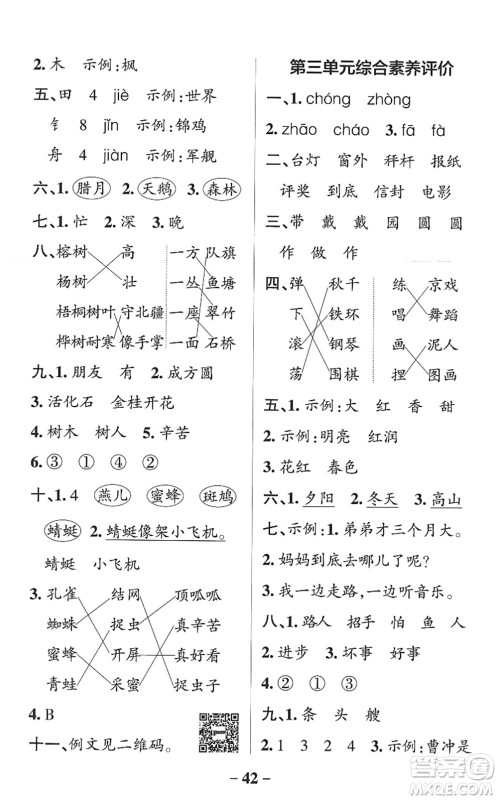 2.木 示例:枫
五、田 4 jiè 示例:世界
钅 8 jǐn 示例:锦鸡
舟 4 jiàn 示例:军舰
六、1.腊月 2.天鹅 3.森林
七、1.忙 2.深 3.晚
八、榕树 高 一方 队旗
杨树 壮 一丛 鱼塘
梧桐树叶 守北疆 一座 翠竹
桦树耐寒 像手掌 一面 石桥
九、1.朋友 有 2.成方圆
3.活化石 金桂开花
4.树木 树人 5.辛苦
6.③ ① ④ ②
十、1.4 燕儿 蜜蜂 斑鸠
蜻蜓 2.蜻蜓像架小飞机。
蜻蜓 小飞机
3.孔雀 结网 顶呱呱
蜘蛛 捉虫 真辛苦
蜜蜂 开屏 真美丽
青蛙 采蜜 捉虫子
4.B
十一、例文见二维码。
第三单元综合素养评价
一、1.chóng zhòng
2.zhāo cháo 3.fā fà
二、台灯 窗外 秤杆 报纸
评奖 到底 信封 电影
三、带 戴 戴 园 圆 圆
作 做 作
四、弹 秋千 练 京戏
下 铁环 唱 舞蹈
滚 钢琴 画 泥人
荡 围棋 捏 图画
五、1.示例:大 红 香 甜
2.示例:明亮 红润
3.花红 春色
六、1.夕阳 2.冬天 3.高山
七、示例:1.弟弟才三个月大。
2.妈妈到底去哪儿了呢?
3.我一边走路,一边听音乐。
八、1.路人 招手 怕 鱼 人
2.进步 3.坏事 好事
4.② ① ③
九、1.条 头 艘
2.1 3 2 4 示例:曹冲是
－42－
答案圈